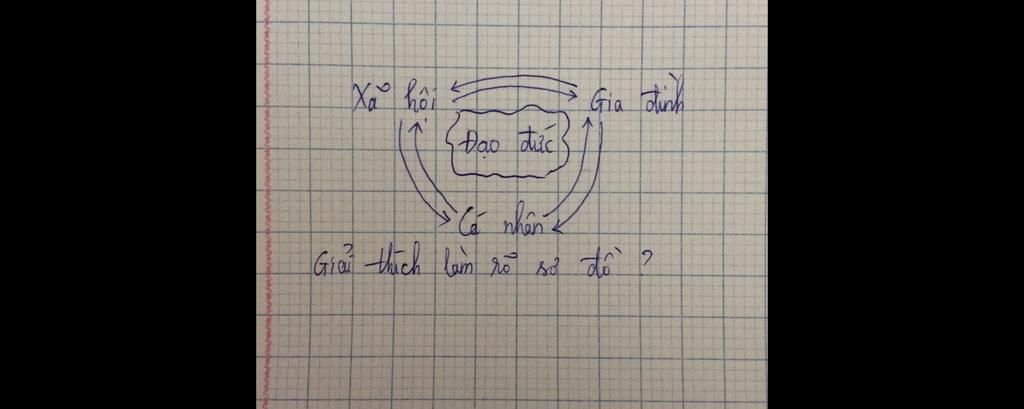 Xã hội Gia đình
Đạo đức
Cá nhân
Giải thích làm rõ sơ đồ ?